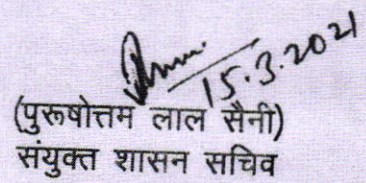 15.3.2021
(पुरूषोत्तम लाल सैनी)
संयुक्त शासन सचिव